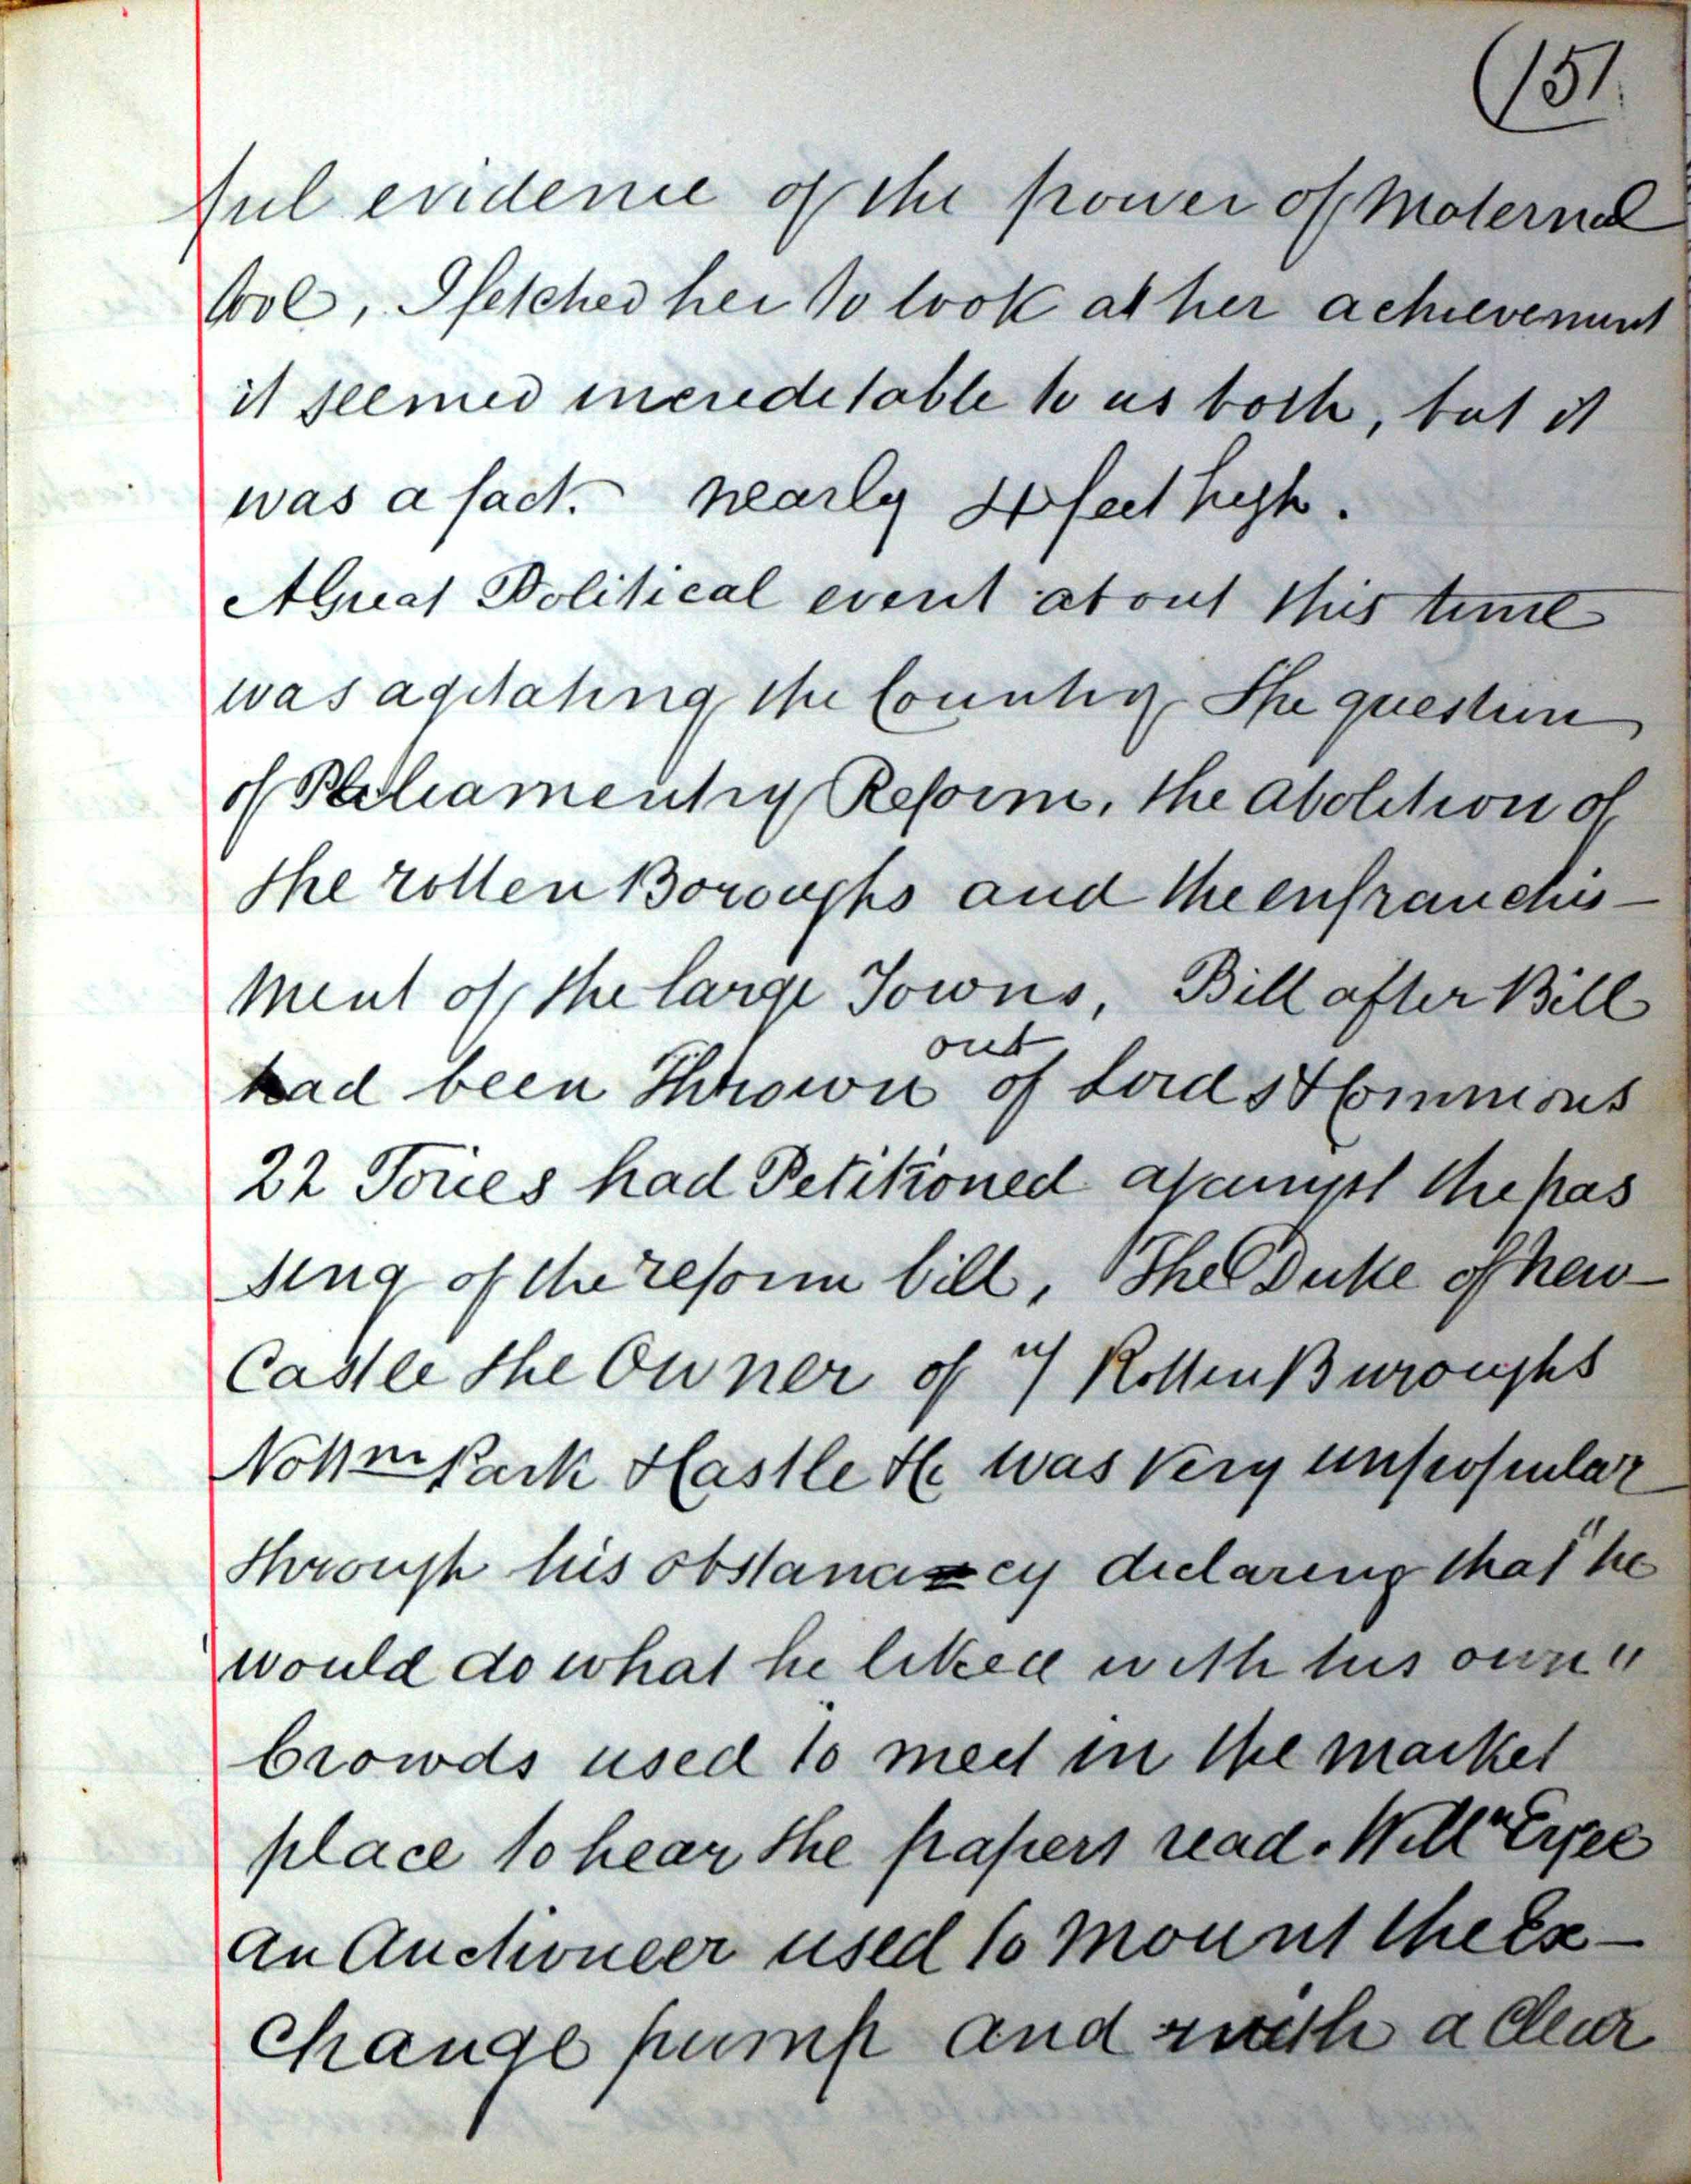 (151
ful evidence of the power of Maternal
love, I fetched her to look at her achievement
it seemed incredetable to us both, but it
was a fact. nearly 4 feet high.
A Great Political event about this time
was agitating the Country The question
of Parliamentry Reform, the abolition of
the rotten Boroughs and the enfranchis-
ment of the large Towns, Bill after Bill
had been Thrown out of Lords & Commons
22 Tories had Petitioned against the pas
sing of the reform bill, The Duke of New-
Castle the Owner of Rotten Buroughs
Nottm Park & Castle He was very unpopular
through his obstanacy declaring that "he
would do what he liked with his own"
Crowds used to meet in the market
place to hear the papers read. Willm
an Auctioneer used to mount the Ex-
change pump and with a clear